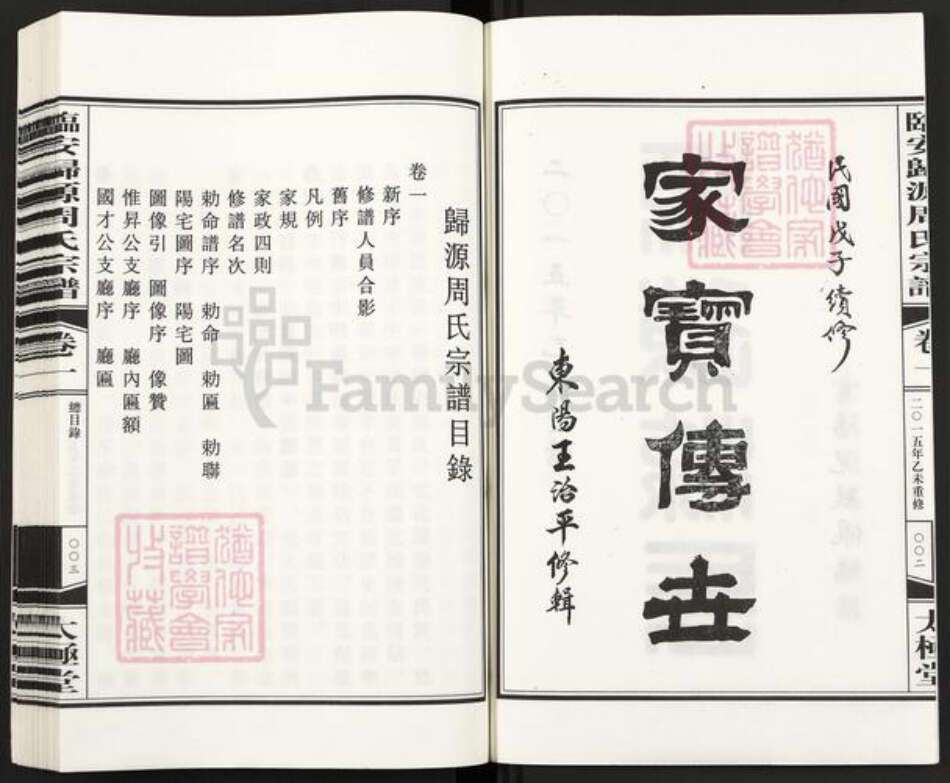 臨安歸源周氏宗譜
卷一
二〇一五年乙未重修
〇〇二
太極堂
民國戊子續修
家寶傳世
東陽王治平修輯
猶他家譜學會收藏
歸源周氏宗譜目錄
卷一
新序
修譜人員合影
舊序
凡例
家規
家政四則
修譜名次
勅命譜序 勅命 勅匾 勅聯
陽宅圖序 陽宅圖
圖像引 圖像序 像贊
惟昇公支廳序 廳內匾額
國才公支廳序 廳匾
猶他家譜學會收藏
臨安歸源周氏宗譜
卷一
總目錄
〇〇三
太極堂
FamilySearch